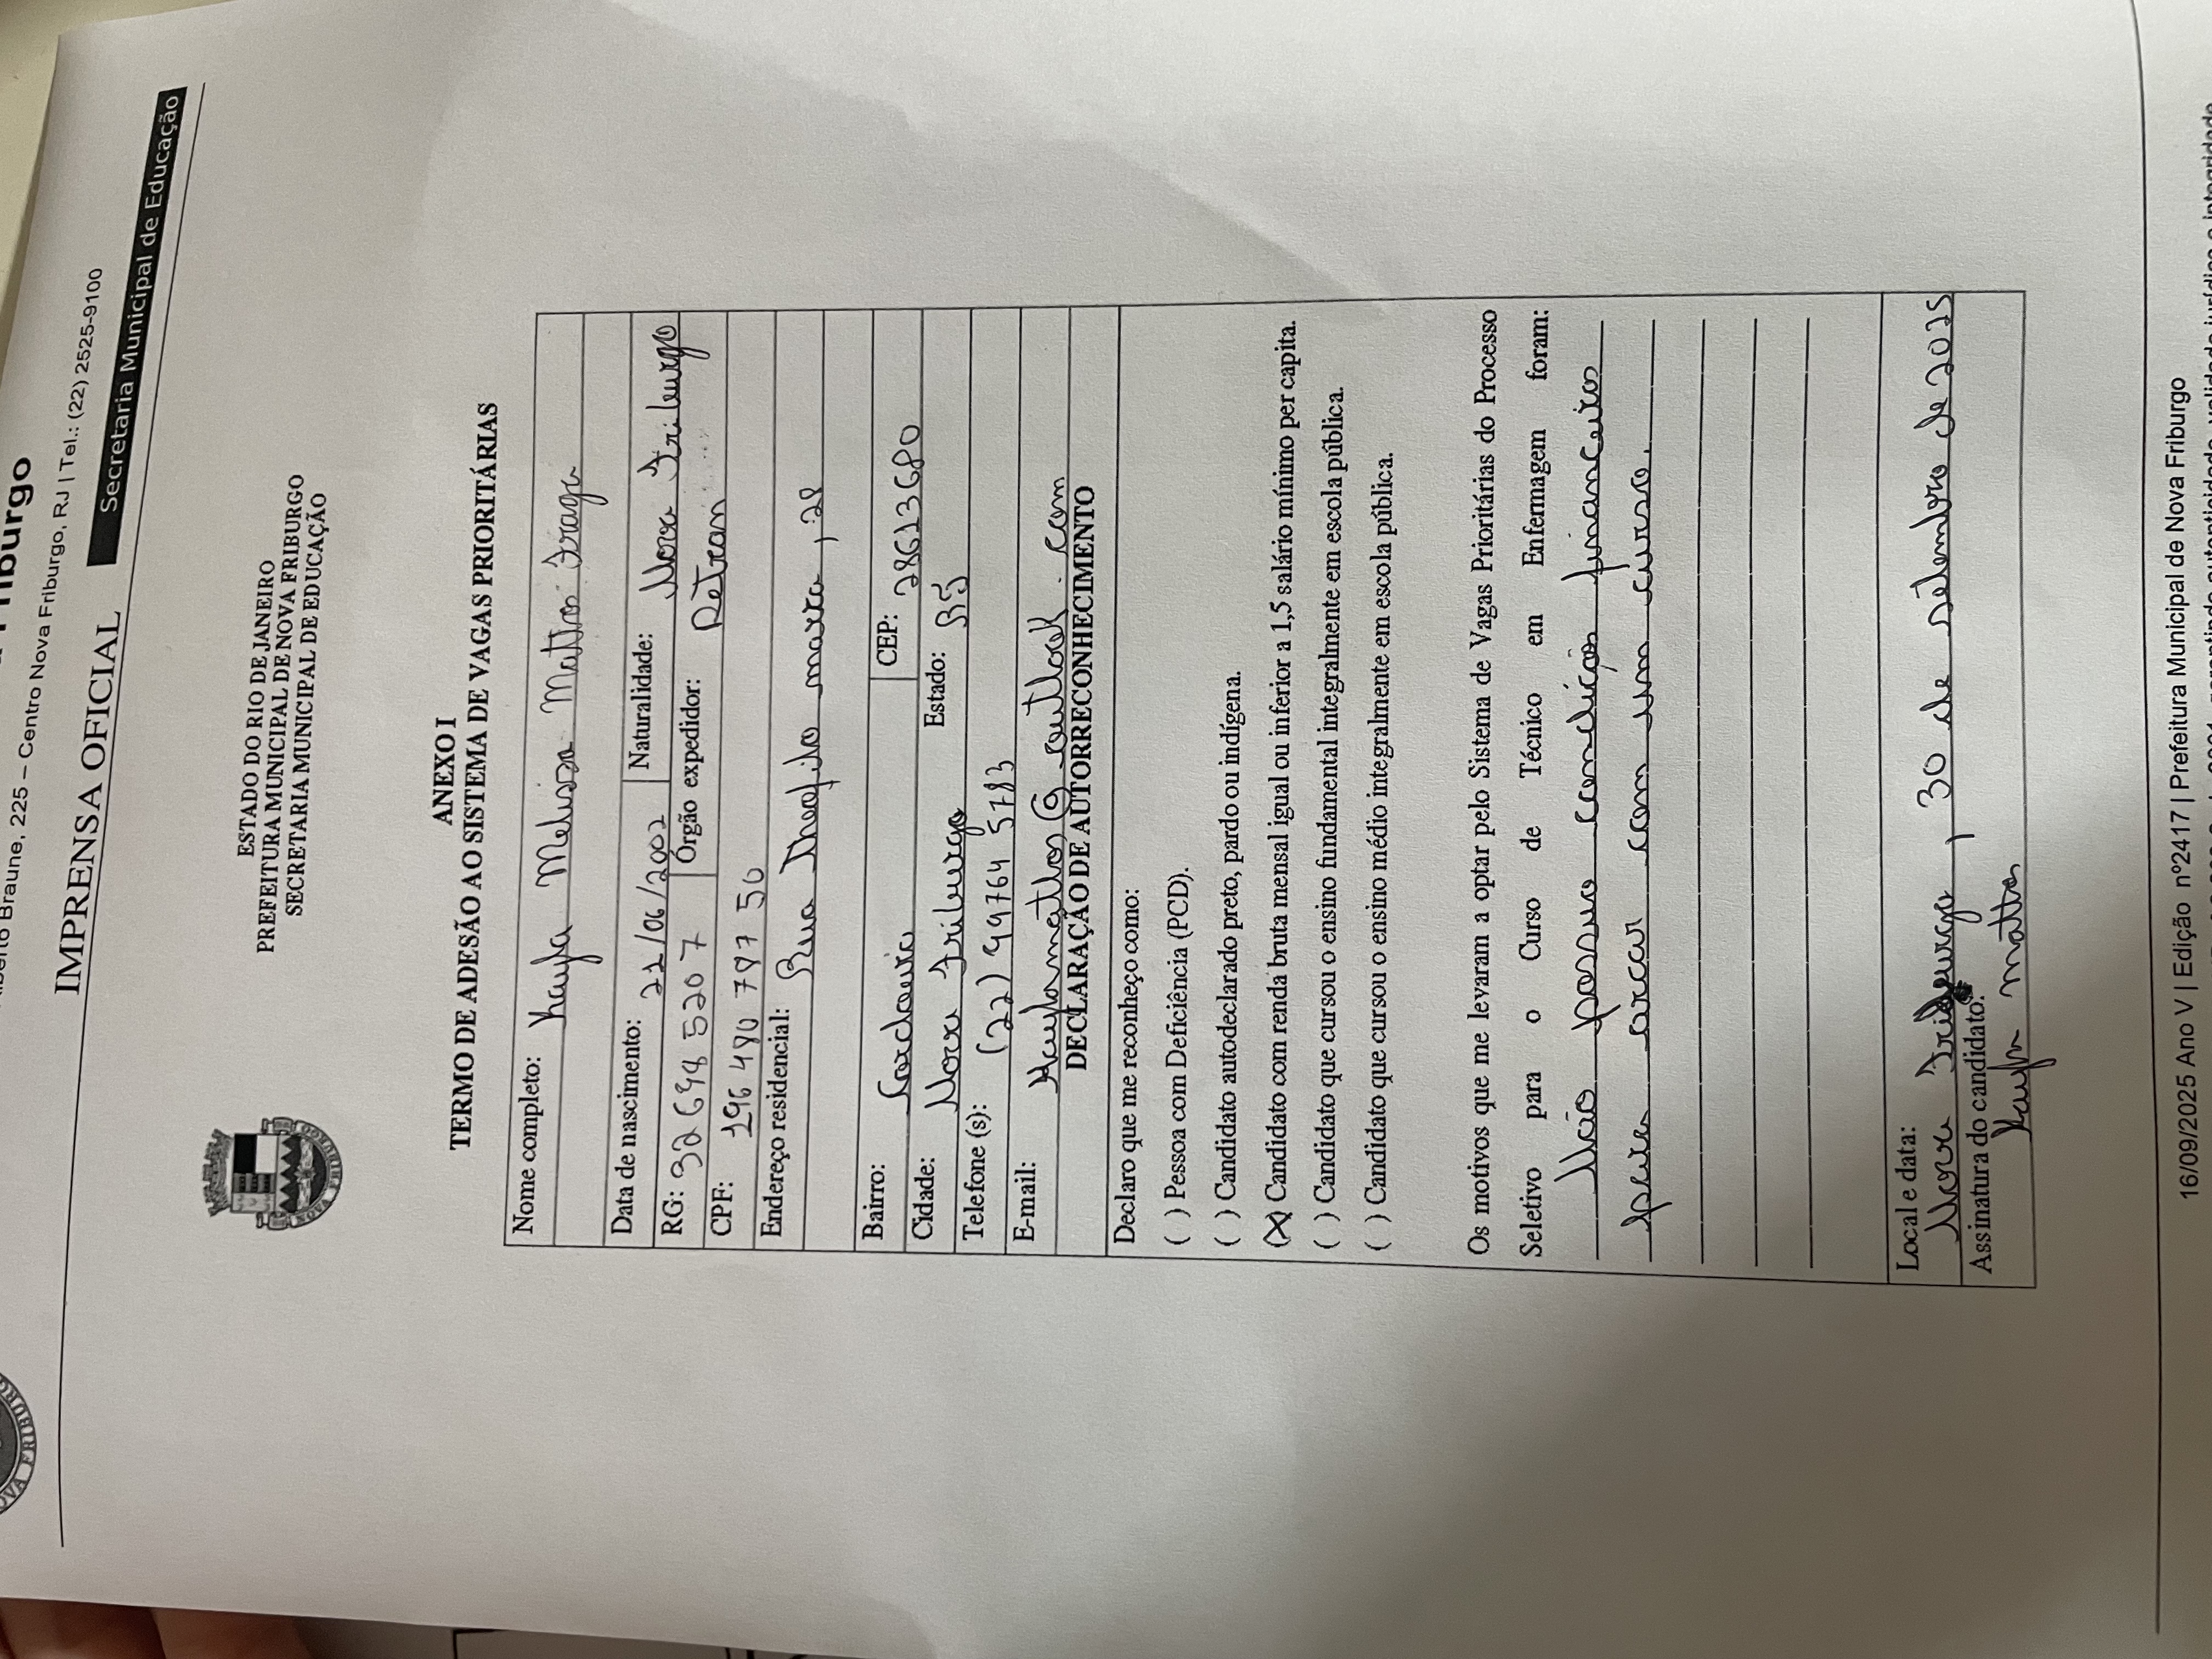 NOVA FRIBURGO
Friburgo
Braune, 225 – Centro Nova Friburgo, RJ | Tel.: (22) 2525-9100
IMPRENSA OFICIAL
Secretaria Municipal de Educação
NOVA FRIBURGO
ESTADO DO RIO DE JANEIRO
PREFEITURA MUNICIPAL DE NOVA FRIBURGO
SECRETARIA MUNICIPAL DE EDUCAÇÃO
ANEXO I
TERMO DE ADESÃO AO SISTEMA DE VAGAS PRIORITÁRIAS
Nome completo: Kayla Melissa Mattos Fraga
Data de nascimento: 21/06/2002 Naturalidade: Nova Friburgo
RG: Órgão expedidor: Detran
CPF:
Endereço residencial: Rua Theofilo
Bairro: CEP: 28613680
Cidade: Nova Friburgo Estado: RJ
Telefone (s): (22) 99764 5783
E-mail: Kaylamattos@outlook.com
DECLARAÇÃO DE AUTORRECONHECIMENTO
Declaro que me reconheço como:
( ) Pessoa com Deficiência (PCD).
( ) Candidato autodeclarado preto, pardo ou indígena.
(X) Candidato com renda bruta mensal igual ou inferior a 1,5 salário mínimo per capita.
( ) Candidato que cursou o ensino fundamental integralmente em escola pública.
( ) Candidato que cursou o ensino médio integralmente em escola pública.
Os motivos que me levaram a optar pelo Sistema de Vagas Prioritárias do Processo
Seletivo para o Curso de Técnico em Enfermagem foram:
Não possuo condições financeiras
para arcar com um curso.
Local e data:
Nova Friburgo, 30 de setembro de 2025
Assinatura do candidato:
Kayla Mattos
16/09/2025 Ano V | Edição nº2417 | Prefeitura Municipal de Nova Friburgo